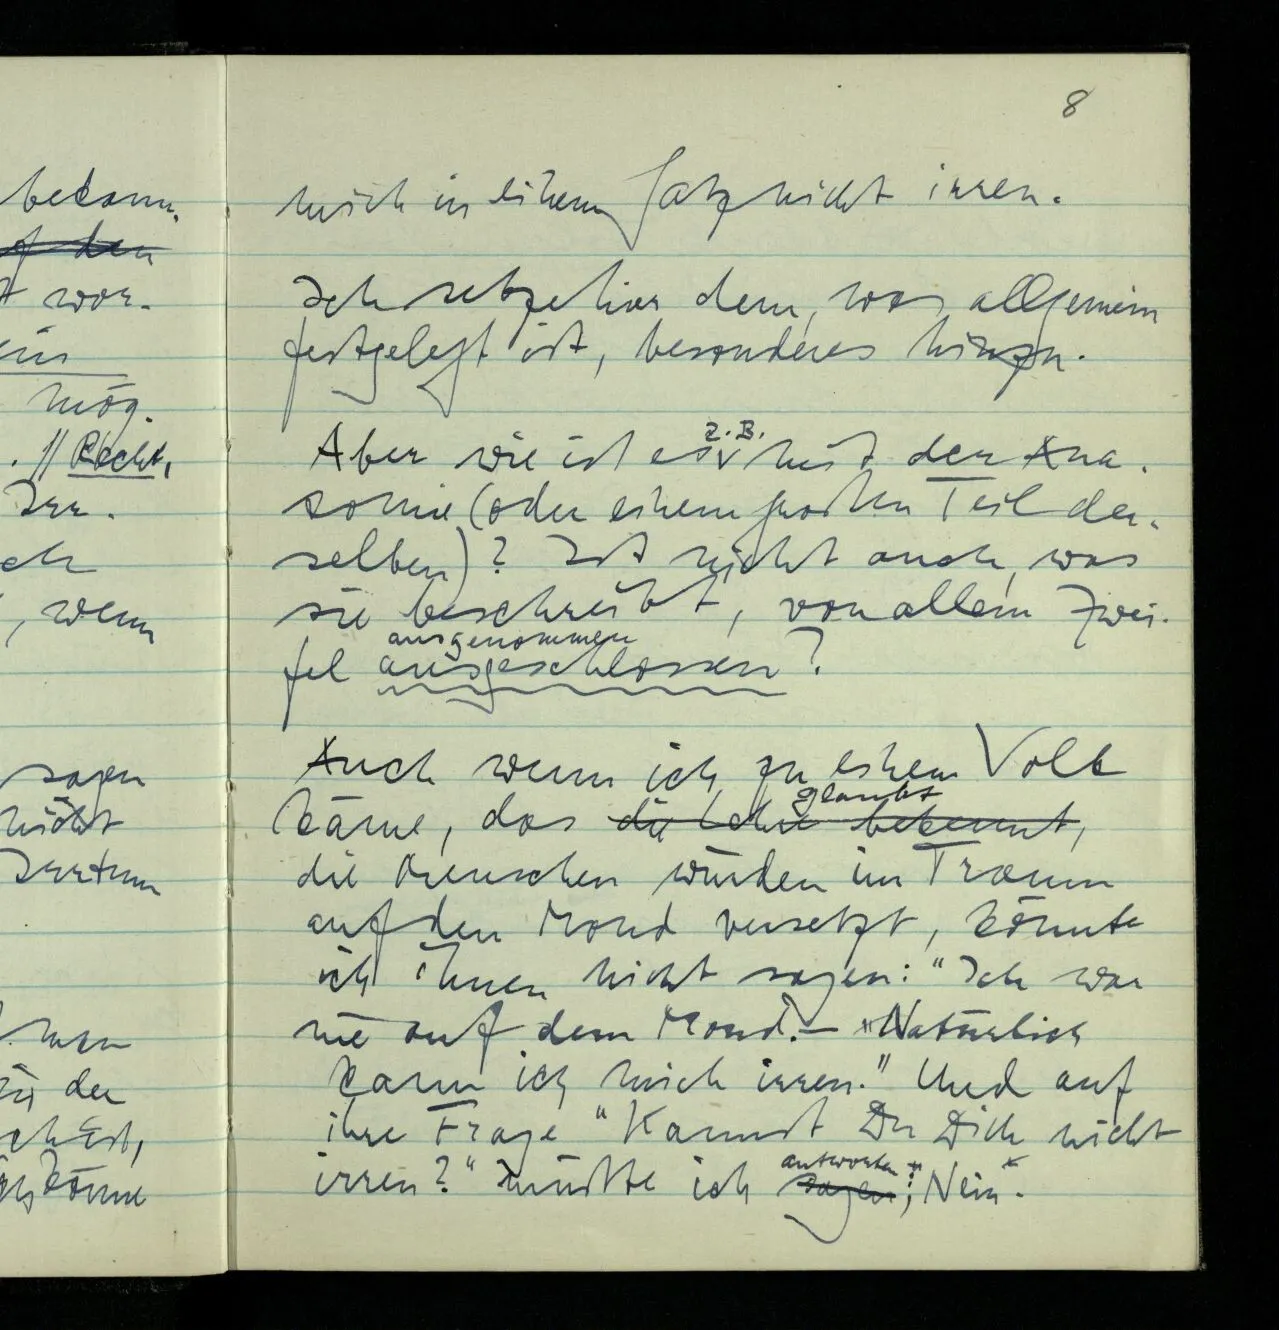 8
bekann.
f den
t wor.
ein
mög.
. // Recht,
Irr.
ch
, wenn
sagen
nicht
Irrtum
man
in der
ch ist,
könne
mich in einem Satz nicht irren.
Ich setze hier dem, was allgemein
festgelegt ist, besonderes hinzu.
z.B.
Aber wie ist es mit der Ana-
tomie (oder einem großen Teil der-
selben)? Ist nicht auch, was
sie beschreibt, von allem Zwei-
ausgenommen
fel ausgeschlossen?
Auch wenn ich zu einem Volk
glaubt
käme, das die Lehre bekennt,
die Menschen würden im Traum
auf den Mond versetzt, könnte
ich ihnen nicht sagen: "Ich war
nie auf dem Mond. – "Natürlich
kann ich mich irren." Und auf
ihre Frage "Kannst Du Dich nicht
antworten:
irren?" müßte ich sagen; Nein".